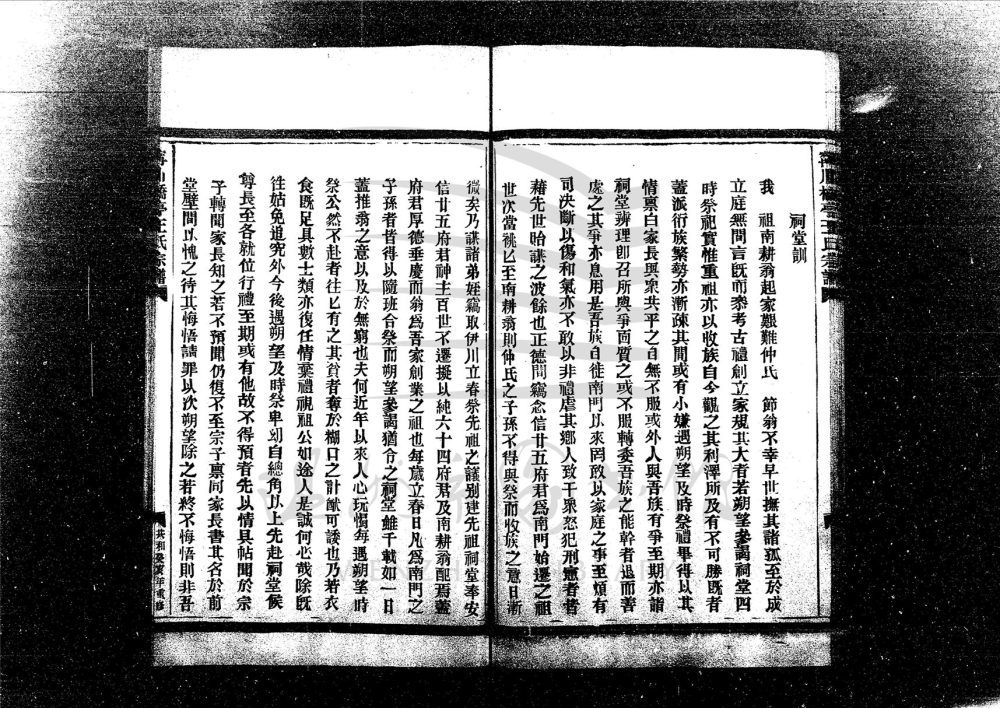 祠堂訓
我　祖南耕翁起家艱難仲氏　節翁不幸早世撫其諸孤至於成
立庭無間言既而叅考古禮創立家規其大者若朔望參謁祠堂四
時祭祀實惟重祖亦以收族自今觀之其利澤所及有不可勝既者
蓋派衍族繁勢亦漸疎其間或有小嫌遇朔望及時祭禮畢得以其
情禀白家長與衆共平之自無不服或外人與吾族有爭至期亦諧
祠堂辨理卽召所與爭面質之或不服轉委吾族之能幹者退而善
處之其爭亦息用是吾族自徙南門以來罔敢以家庭之事至煩有
司決斷以傷和氣亦不敢以非禮虐其鄉人致干衆怒犯刑憲者皆
藉先世貽謀之波餘也正德間竊念信廿五府君為南門始遷之祖
世次當祧匕至南耕翁則仲氏之子孫不得與祭而收族之意日漸
微矣乃謀諸弟姪竊取伊川立春祭先祖之議別建先祖祠堂奉安
信廿五府君神主百世不遷擬以純六十四府君及南耕翁配焉蓋
府君厚德垂慶而翁為吾家創業之祖也每歲立春日凡為南門之
子孫者皆得以隨班合祭而朔望參謁猶令之祠堂雖千載如一日
蓋推翁之意以及於無窮也夫何近年以來人心玩愒每遇朔望時
祭公然不赴者往匕有之其貧者奪於糊口之計猷可諉也乃若衣
食既足具數士類亦復任情棄禮視祖公如途人是誠何心哉除既
徃姑免追究外今後遇朔望及時祭卑幼自總角以上先赴祠堂候
尊長至各就位行禮至期或有他故不得預者先以情具帖聞於宗
子轉聞家長知之若不預聞仍復不至宗子禀同家長書其名於前
堂壁間以愧之待其悔悟請罪以次朔望除之若終不悔悟則非吾
氏宗譜
共和癸亥年重修